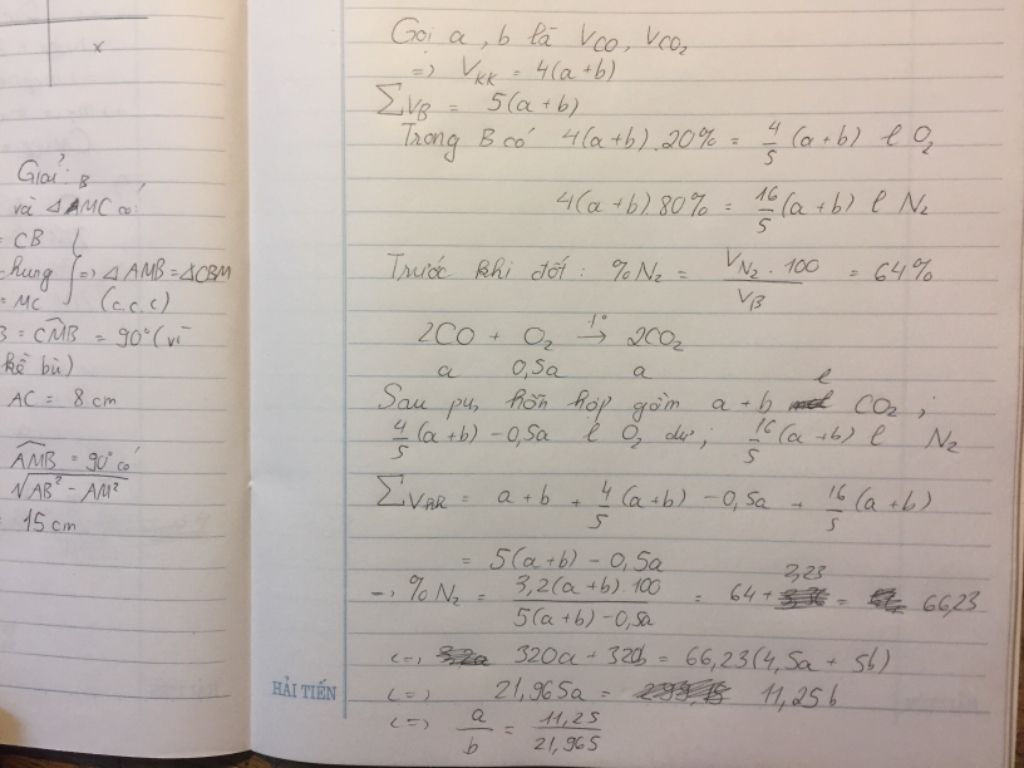 x
Giải:
B
và △AMC có:
= CB
chung } => △AMB = △CBM
= MC (c.c.c)
B = CMB = 90° (vì
kề bù)
AC = 8 cm
AMB = 90° có
√AB² - AM²
15 cm
Gọi a, b là V_CO, V_CO₂
=> V_KK = 4(a+b)
∑V_B = 5(a+b)
Trong B có 4(a+b).20% = 4/5 (a+b) l O₂
4(a+b).80% = 16/5 (a+b) l N₂
Trước khi đốt: %N₂ = V_N₂ . 100 / V_B = 64%
2CO + O₂ →(t°) 2CO₂
a 0,5a a
Sau pu, hỗn hợp gồm a+b l CO₂;
4/5 (a+b) - 0,5a l O₂ dư; 16/5 (a+b) l N₂
∑V = a+b + 4/5 (a+b) - 0,5a + 16/5 (a+b)
= 5(a+b) - 0,5a
→ %N₂ = 3,2(a+b).100 / 5(a+b) - 0,5a = 64 + 2,23 = 66,23
<=> 320a + 320b = 66,23(4,5a + 5b)
<=> 21,965a = 11,25b
<=> a/b = 11,25/21,965
HẢI TIẾN